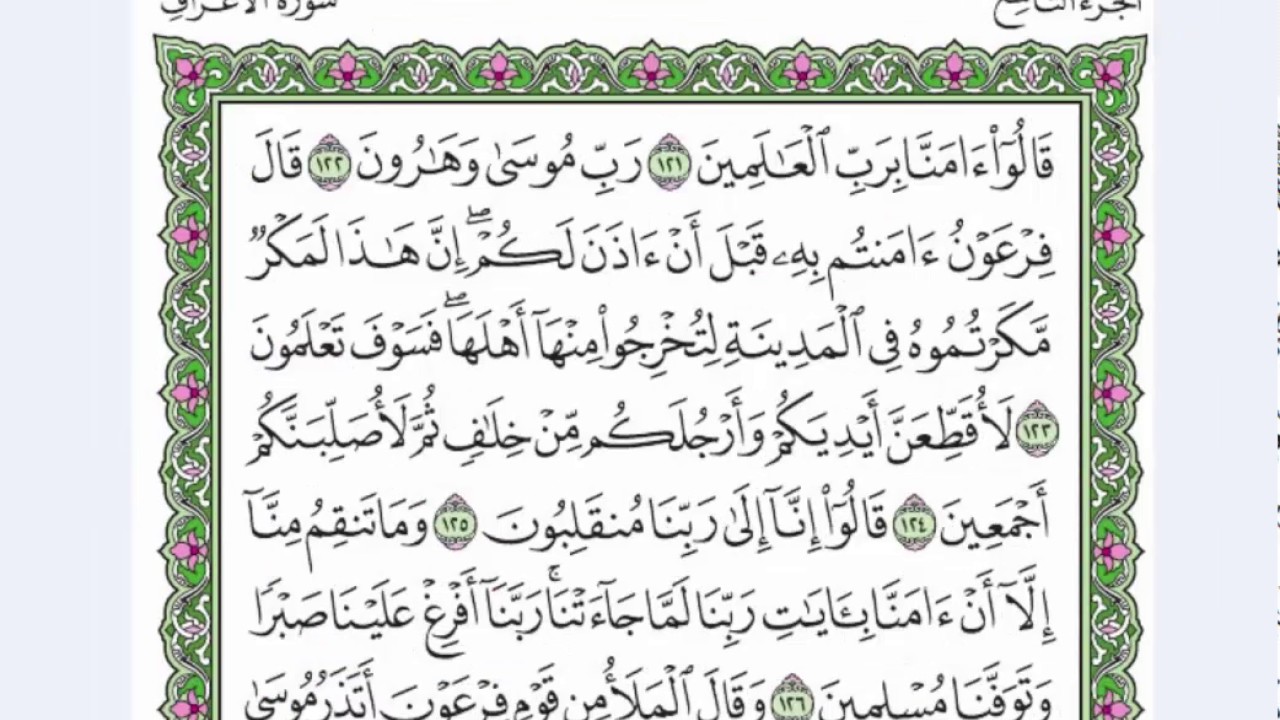 الجزء التاسع سورة الأعراف
قَالُوٓاْ ءَامَنَّا بِرَبِّ ٱلْعَٰلَمِينَ ١٢١ رَبِّ مُوسَىٰ وَهَٰرُونَ ١٢٢ قَالَ
فِرْعَوْنُ ءَامَنتُم بِهِۦ قَبْلَ أَنْ ءَاذَنَ لَكُمْۖ إِنَّ هَٰذَا لَمَكْرٌ
مَّكَرْتُمُوهُ فِى ٱلْمَدِينَةِ لِتُخْرِجُواْ مِنْهَآ أَهْلَهَاۖ فَسَوْفَ تَعْلَمُونَ
١٢٣ لَأُقَطِّعَنَّ أَيْدِيَكُمْ وَأَرْجُلَكُم مِّنْ خِلَٰفٍ ثُمَّ لَأُصَلِّبَنَّكُمْ
أَجْمَعِينَ ١٢٤ قَالُوٓاْ إِنَّآ إِلَىٰ رَبِّنَا مُنقَلِبُونَ ١٢٥ وَمَا تَنقِمُ مِنَّآ
إِلَّآ أَنْ ءَامَنَّا بِـَٔايَٰتِ رَبِّنَا لَمَّا جَآءَتْنَاۚ رَبَّنَآ أَفْرِغْ عَلَيْنَا صَبْرًا
وَتَوَفَّنَا مُسْلِمِينَ ١٢٦ وَقَالَ ٱلْمَلَأُ مِن قَوْمِ فِرْعَوْنَ أَتَذَرُ مُوسَىٰ